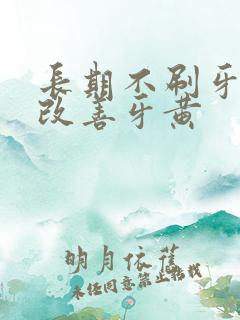 長期不刷牙
改善牙黄
明月依舊
未经同意禁止转载